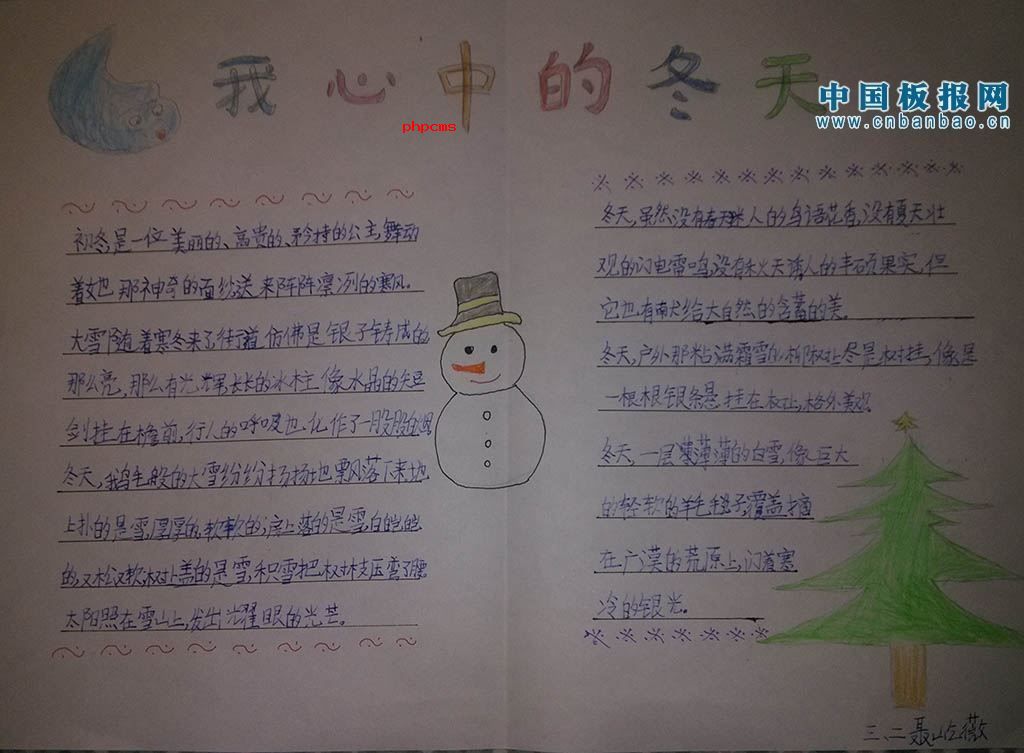 我心中的冬天
中国板报网
www.cnbanbao.cn
phpcms
初冬,是一位美丽的、高贵的、矜持的公主,舞动
着她那神奇的面纱,送来阵阵凛冽的寒风。
大雪随着寒冬来了,街道仿佛是银子铸成的
那么亮,那么有光辉,长长的冰柱像水晶的短
剑挂在檐前,行人的呼吸也化作了一股股白烟
冬天,鹅毛般的大雪纷纷扬扬地飘落下来,地
上扑的是雪,厚厚的,软软的;房上落的是雪,白皑皑
的,又松软;树上盖的是雪,积雪把树枝压弯了腰
太阳照在雪山上,发出耀眼的光芒。
冬天,虽然没有春天迷人的鸟语花香,没有夏天壮
观的闪电雷鸣,没有秋天诱人的丰硕果实,但
它也有献给大自然的含蓄的美。
冬天,户外那粘满霜雪的柳树上尽是树挂,像是
一根根银条悬挂在树上,格外美观
冬天,一层薄薄的白雪,像巨大
的轻软的羊毛毯子覆盖摘
在广漠的荒原上,闪着寒
冷的银光。
三、二聂屹薇